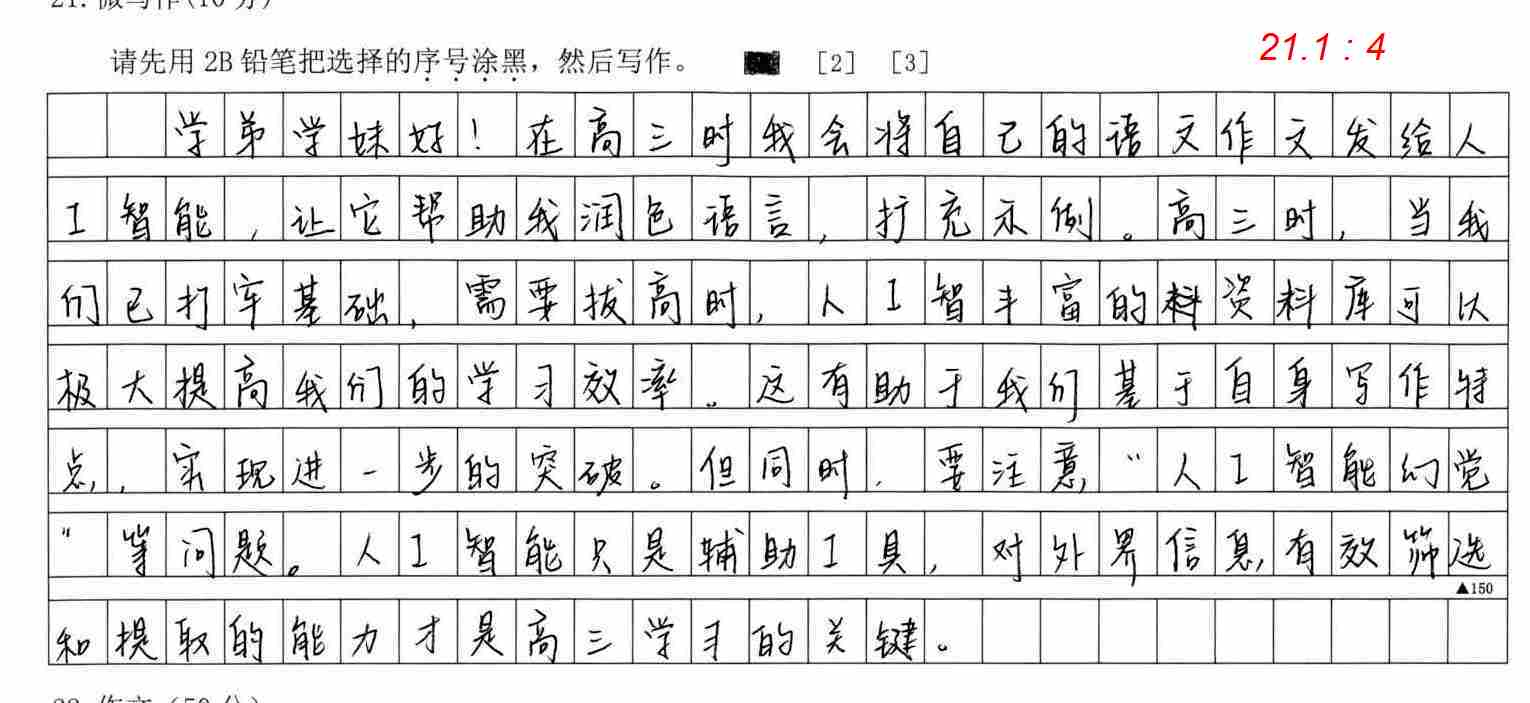 请先用 2B 铅笔把选择的序号涂黑，然后写作。 [2] [3] 21.1 : 4
学弟学妹好！在高三时我会将自己的语文作文发给人
工智能，让它帮助我润色语言，扩充示例。高三时，当我
们已打牢基础，需要拔高时，人工智丰富的资料库可以
极大提高我们的学习效率。这有助于我们基于自身写作特
点，实现进一步的突破。但同时，要注意“人工智能幻觉
”等问题。人工智能只是辅助工具，对外界信息有效筛选
▲150
和提取的能力才是高三学习的关键。